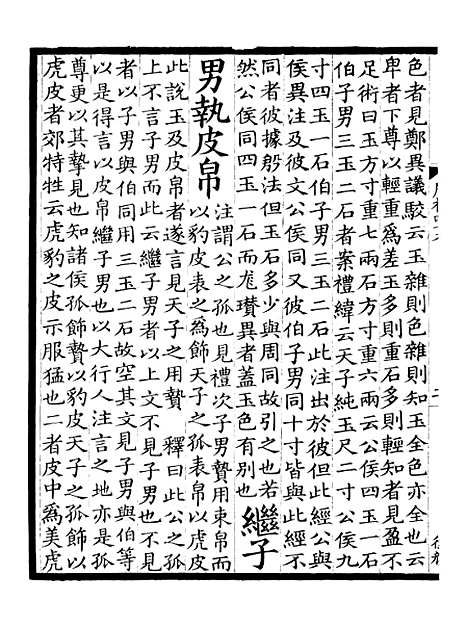 色者見鄭異議駮云玉雜則色雜則知玉全色亦全也云
卑者下尊以輕重爲差玉多則重石多則輕知者見盈不
足術曰玉方寸重七兩石方寸重六兩云公侯四玉一石
伯子男三玉二石者案禮緯云天子純玉尺二寸公侯九
寸四玉一石伯子男三玉二石此注出於彼但此經公與
侯異注及彼文公侯同又彼伯子男同十寸皆與此經不
同者彼據殷法但玉石多少與周同故引之也若
然公侯同四玉一石而尨瓚異者蓋玉色有別也 繼子
男執皮帛 注謂公之孤也見禮次子男贄用束帛而
以豹皮表之爲飾天子之孤表帛以虎皮
此說玉及皮帛者遂言見天子之用贄 釋曰此公之孤
上不言子男而此云繼子男者以上文不見子男也不見
者以子男與伯同用三玉二石故空其文見子男與伯等
以是得言以皮帛繼子男也以大行人注言之地亦是孤
尊更以其摯見也知諸侯孤飾贄以豹皮天子之孤飾以
虎皮者郊特牲云虎豹之皮示服猛也二者皮中爲美虎